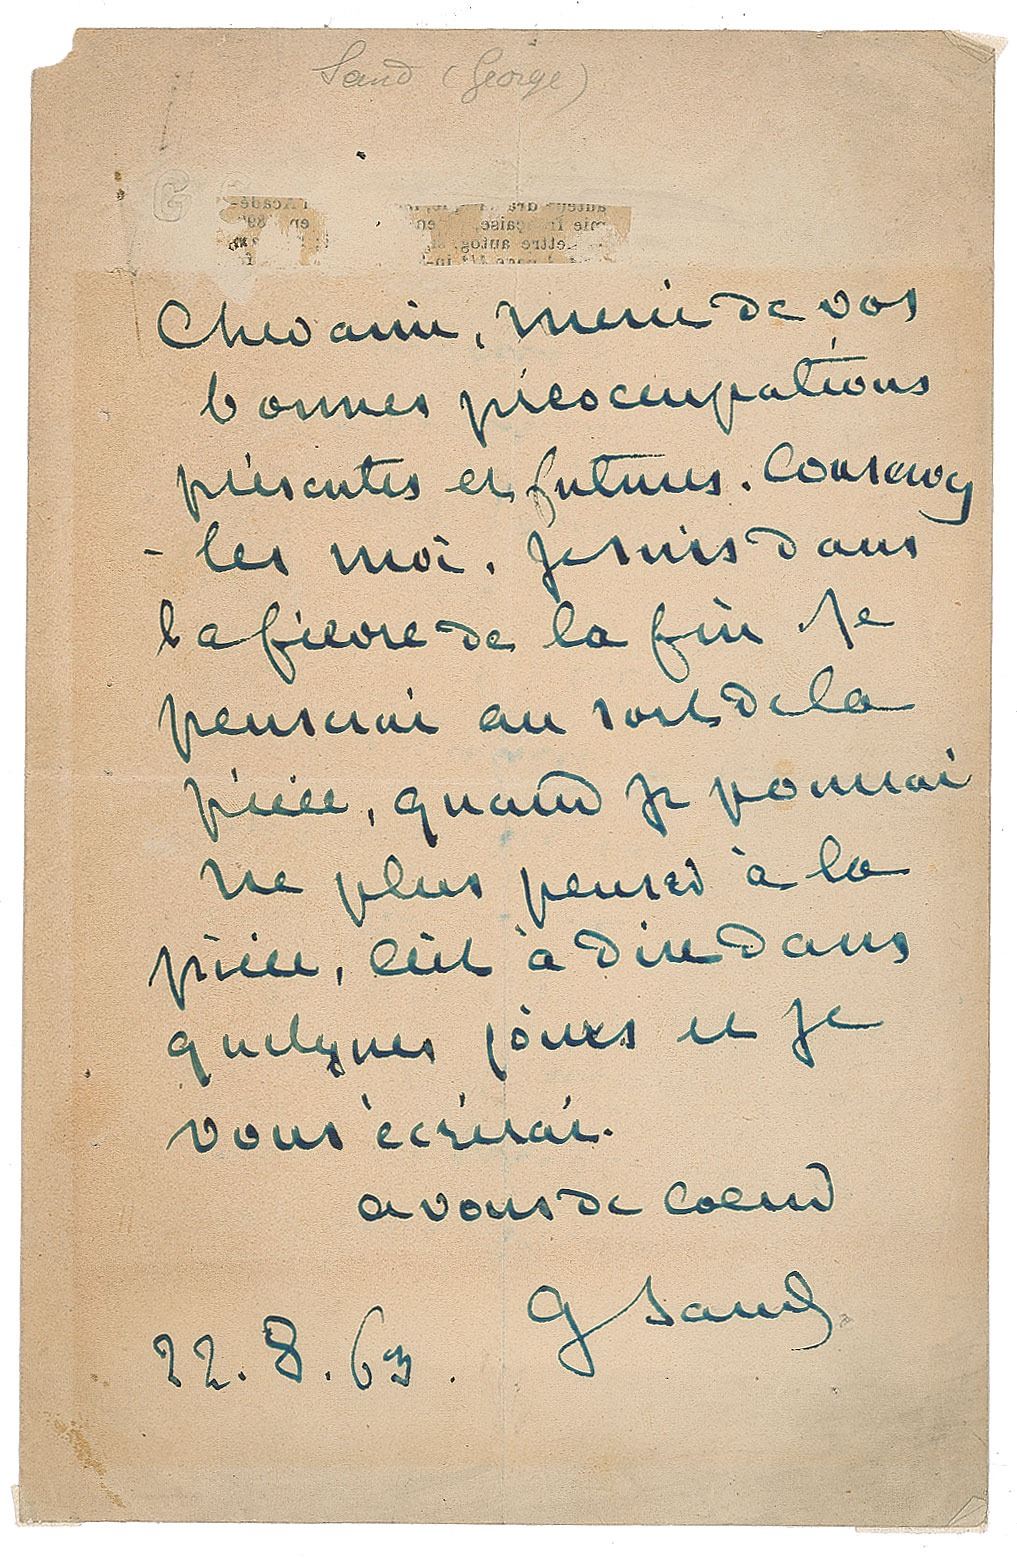 Sand (George)
Cher ami, merci de vos
bonnes préoccupations
présentes et futures. Conservez
- les moi. Je suis dans
la fièvre de la fin. Je
penserai au sort de la
pièce, quand je pourrai
ne plus penser à la
pièce, c'est à dire dans
quelques jours et je
vous écrirai.
a vous de coeur
G Sand
22. 8. 63.